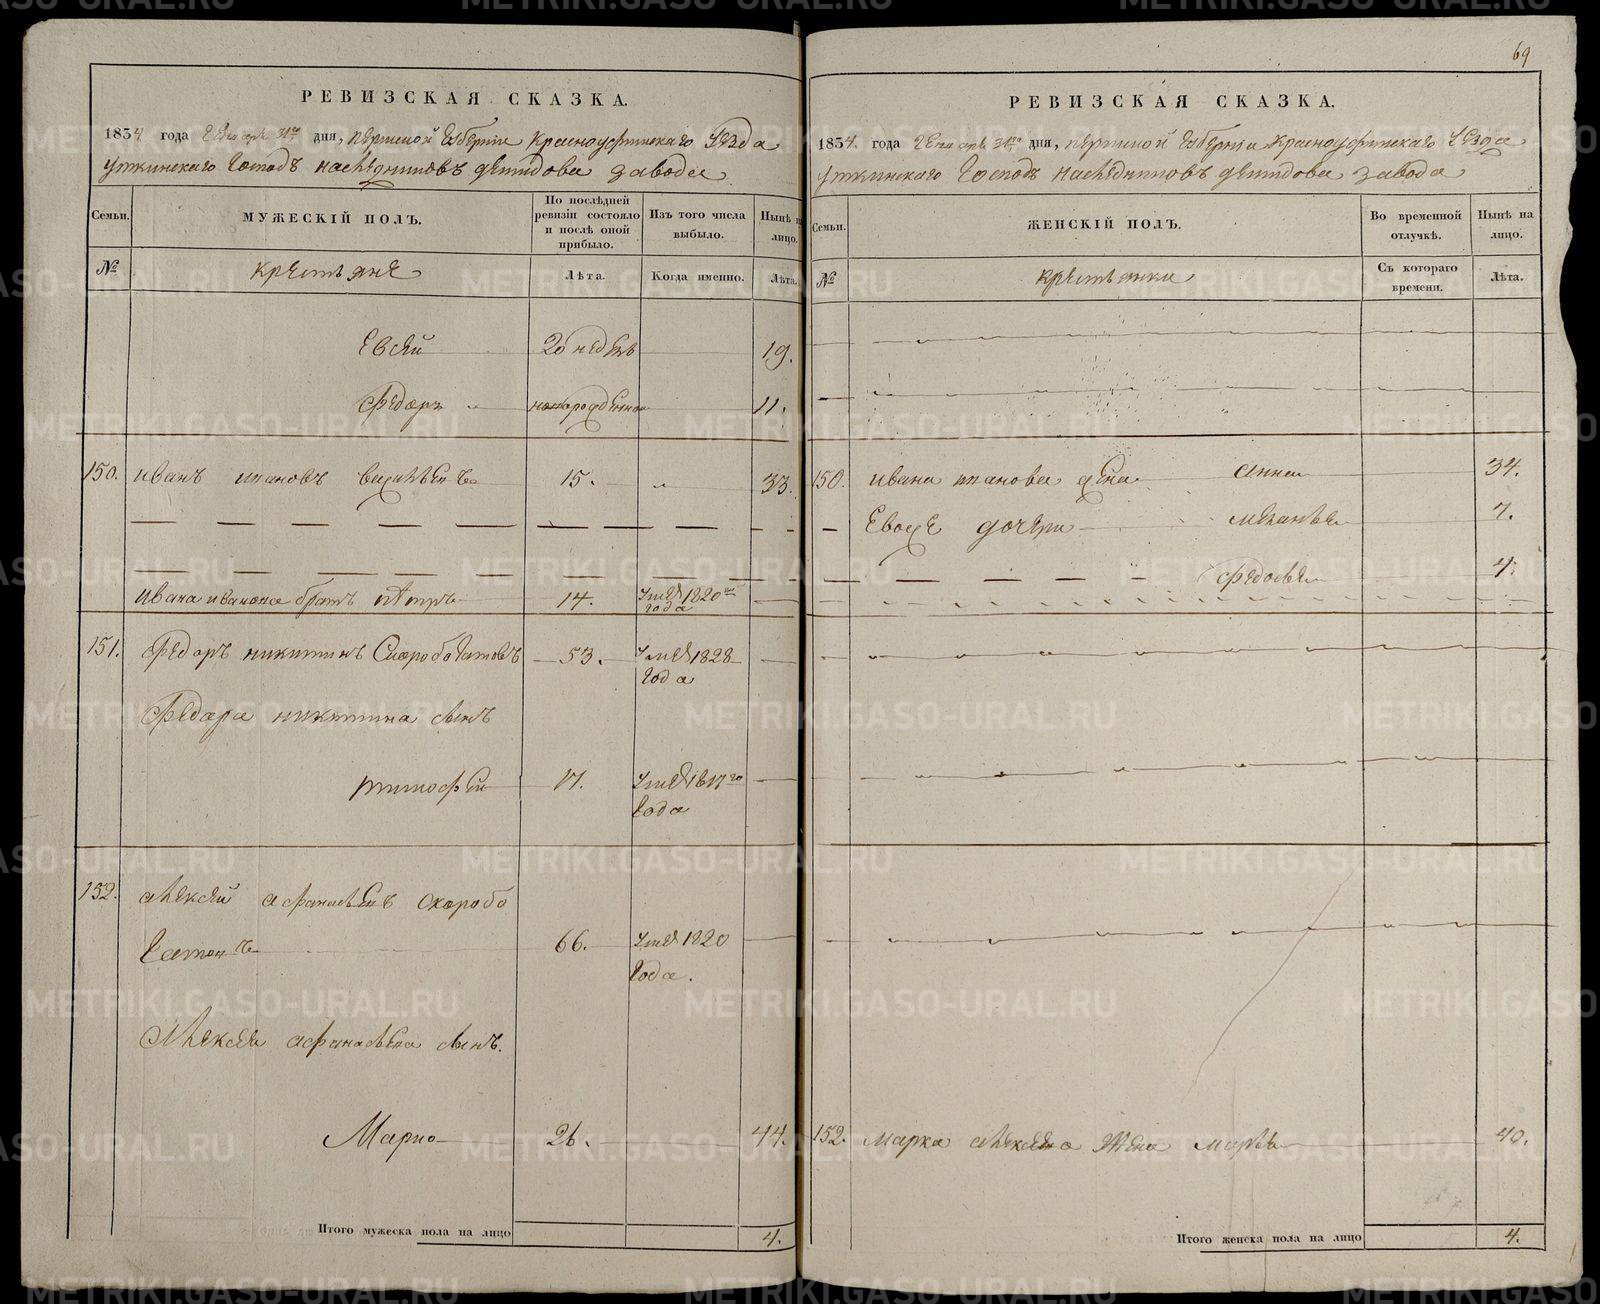 69
РЕВИЗСКАЯ СКАЗКА.
1834 года Генваря 31го дня, Пермской Губернии Красноуфимского Уезда
Уткинского Господъ наследниковъ Демидова завода
Семьи.
МУЖЕСКІЙ ПОЛЪ.
По послѣдней ревизіи состояло и послѣ оной прибыло.
Изъ того числа выбыло.
Нынѣ на лицо.
№
Крестьяне
Лѣта.
Когда именно.
Лѣта.
Евсей 20 недель 19.
Федоръ новорожденной 11.
150. Иванъ Ивановъ 15. 33.
Ивана Иванова братъ Петръ 14. Умеръ 1820го года
151. Федоръ Никитинъ Скоробогатовъ 53. Умеръ 1828 года
Федора Никитина сынъ
Тимофей 17. Умеръ 1817го года
152. Алексей Афанасьевъ Скоробо
гатовъ 66. Умеръ 1820 года.
Алексея Афанасьева сынъ.
Марко 26. 44.
Итого мужеска пола на лицо 4.
РЕВИЗСКАЯ СКАЗКА.
1834 года Генваря 31го дня, Пермской Губернии Красноуфимского Уезда
Уткинского Господъ наследниковъ Демидова завода
Семьи.
ЖЕНСКІЙ ПОЛЪ.
Во временной отлучкѣ.
Нынѣ на лицо.
№
Крестьянки
Съ котораго времени.
Лѣта.
150. Ивана Иванова жена Анна 34.
Евоже дочери Меланья 7.
Федосья 4.
152. Марка Алексеева жена Марья 40.
Итого женска пола на лицо 4.
METRIKI.GASO-URAL.RU